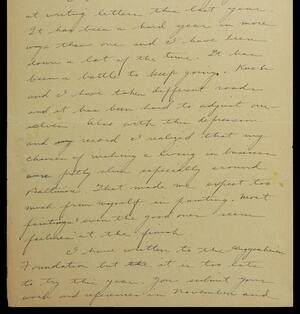 at writing letters this last year.
It has been a hard year in more
ways than one and I have been
down a lot of the time. It has
been a battle to keep going.
and I have taken different roads
and it has been hard to adjust our-
selves. Also with the depression
and my record I realized that my
chances of making a living in business
were pretty slim especially around
Baltimore. That made me expect too
much from myself in painting. Most
paintings even the good ones seem
failures at the finish.
I have written to the Guggenheim
Foundation but it is too late
to try this year. You submit your
work and references in November and